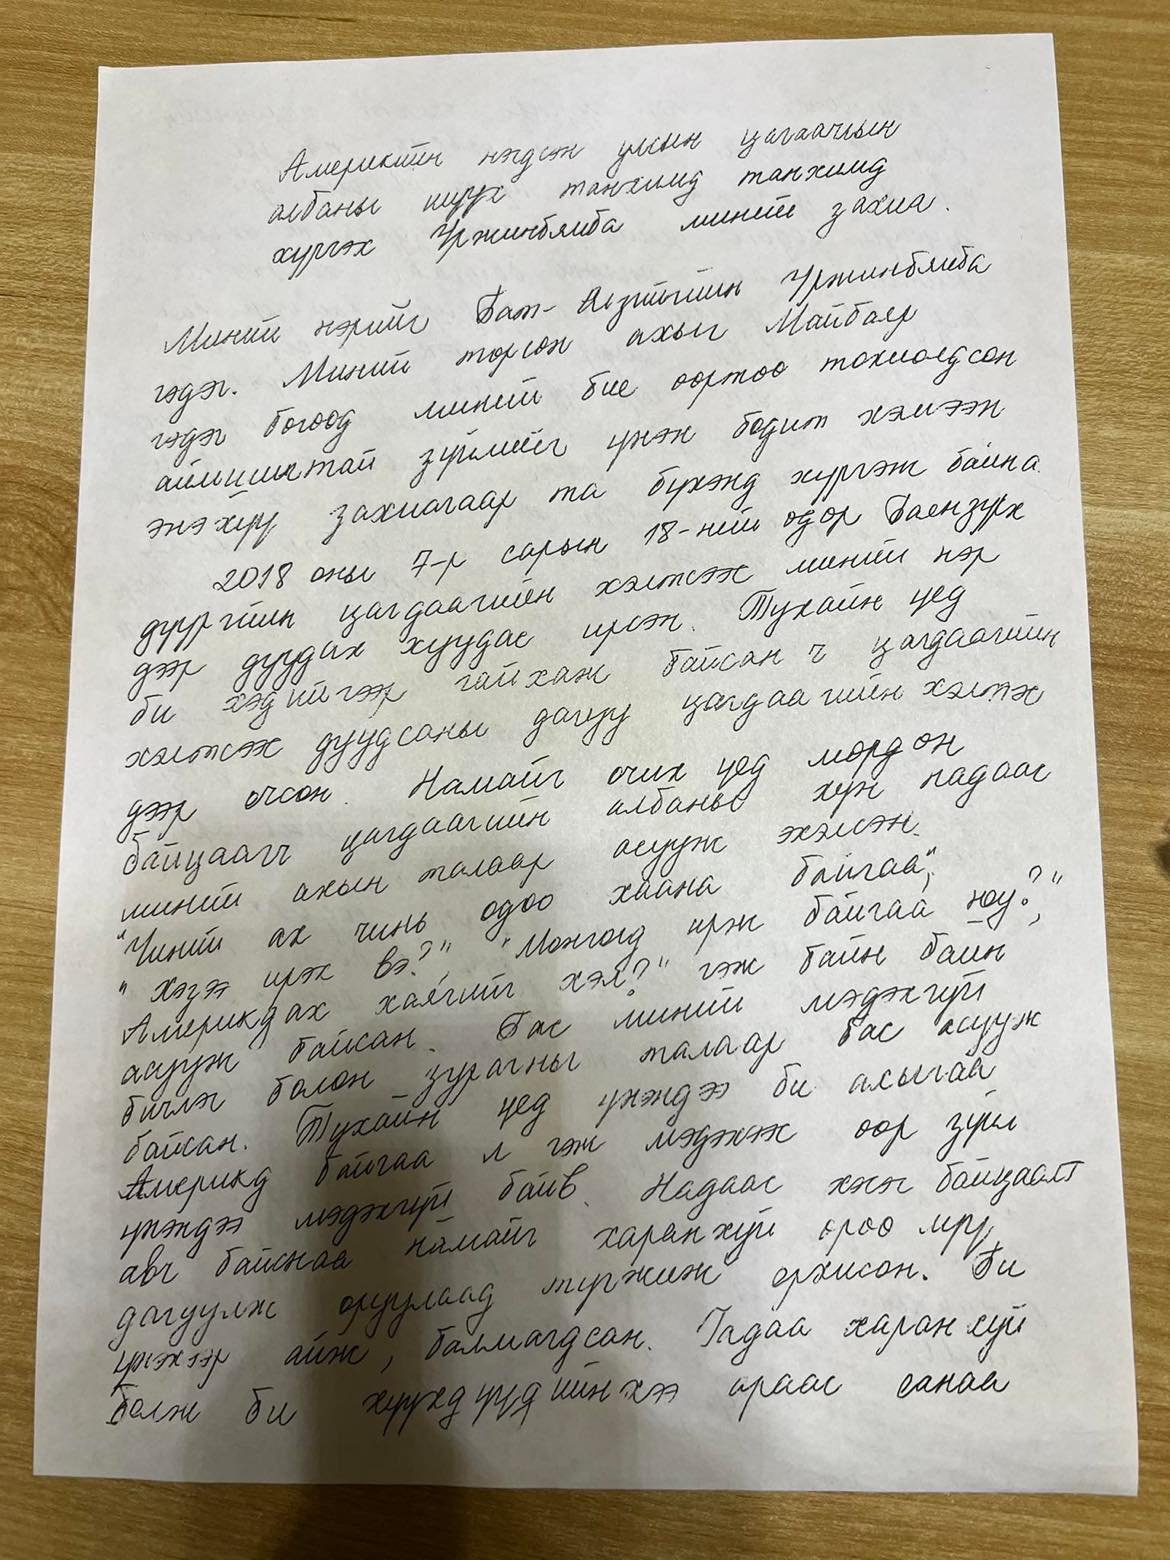 Америкийн нэгдсэн улсын цагаачлын
албаны шүүх танхимд танхимд
хүргэх Уржинбямба миний захиа.
Миний нэрийг Бат-Өлзийгийн Уржинбямба
гэдэг. Миний төрсөн ахыг Майбаяр
гэдэг бөгөөд миний бие өөртөө тохиолдсон
аймшигтай зүйлийг үнэн бодит хэмээн
энэхүү захиагаар та бүхэнд хүргэж байна.
2018 оны 7-р сарын 18-ний өдөр Баянзүрх
дүүргийн цагдаагийн хэлтсээс миний нэр
дээр дуудах хуудас ирсэн. Тухайн үед
би хэдийгээр гайхаж байсан ч цагдаагийн
хэлтсээс дуудсаны дагуу цагдаагийн хэлтэс
дээр очсон. Намайг очих үед мөрдөн
байцаагч цагдаагийн албаны хүн надаас
миний ахын талаар асууж эхэлсэн.
"Чиний ах чинь одоо хаана байгаа",
"Хэзээ ирэх вэ?" "Монголд ирж байгаа юу?",
Америкдах хаягийг хэл?" гэж байн байн
асууж байсан. Бас миний мэдэхгүй
бичлэг болон зурагны талаар бас асууж
байсан. Тухайн үед үнэндээ би ахыгаа
Америкд байгаа л гэж мэдэхээс өөр зүйл
үнэндээ мэдэхгүй байв. Надаас хэсэг байцаалт
авч байснаа намайг харанхуй өрөө лүү
дагуулж оруулаад түгжиж орхисон. Би
үнэхээр айж, балмагдсан. Гадаа харанхуй
болж би хүүхдүүдийнхээ араас санаа